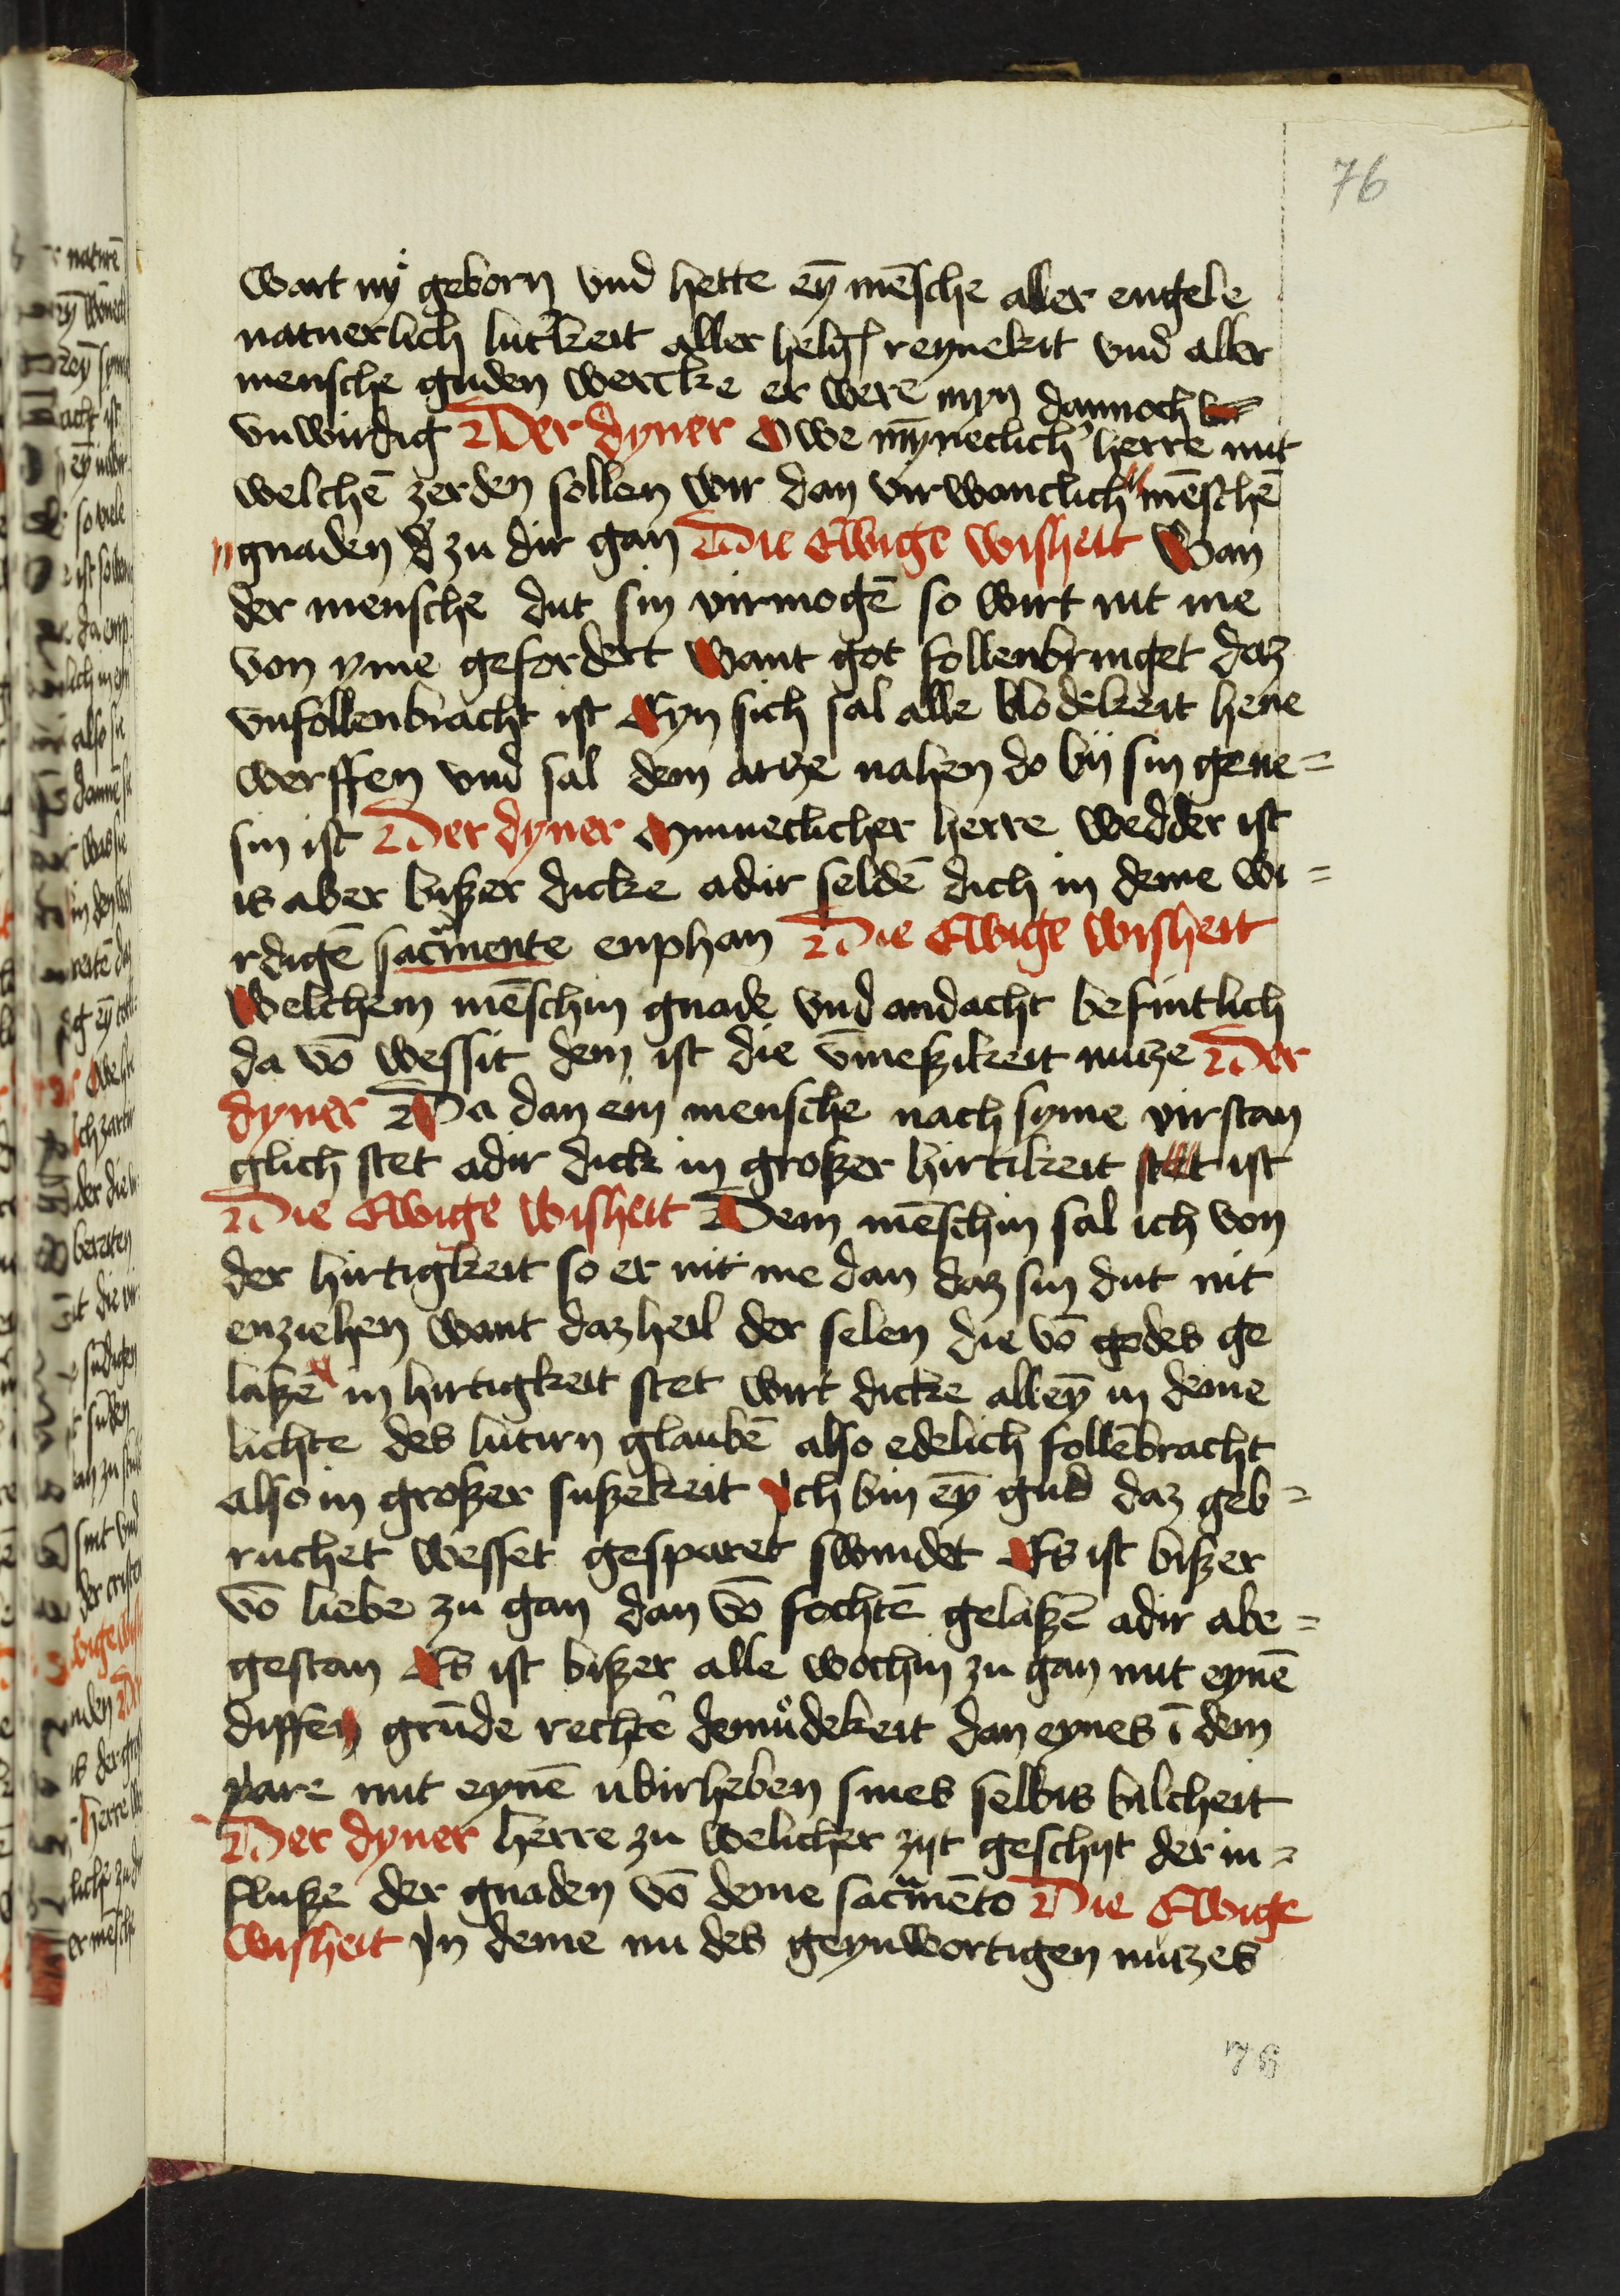 76
wart nÿ geborn vnd hette eȳ mēsche aller engele
naturerlich lut'keit aller helg reynekeit vnd aller
mensche guden wercke er were myn dannoch
vnwirdig Der dyner Owe mȳneclich' herre mit
welchē zerden sollen wir dan virwanclich mēschē
gnaden d' zu dir gan Die Ewige wisheit Wan
der mensche dut sin virmogē so wirt nit me
von yme gefordert Want got follenbringet daz
vnfollenbracht ist Eyn sich sal alle blodekeit hene
werffen vnd sal dem artze nahen do bÿ sin gene=
sin ist Der dyner Mynneclicher herre wedder ist
is aber biszer dicke adir seldē dich in deme wi=
rdigē sacmente enphan Die Ewige wisheit
Welchem mēschin gnade vnd andacht befintlich
da vō wessit dem ist die v̄meszikeit nutze Der
dyner Da dan ein mensche nach syme virstan
glich stet adir dick in groszer hirtikeit stet ist
Die Ewige wisheit Dem mēschin sal ich von
der hirtigkeit so er nit me dan daz sin dut nit
enziehen want daz heil der selen die vō godes ge
laszē in hirtigkeit stet wirt dicke alleȳ in deme
lichte des lutirn glaubē also edelich follēbracht
also in groszer suszekeit Ich bin eȳ gud daz geb=
ruchet wesset gesparet swindet Es ist biszer
vō liebe zu gan dan vō fochtē gelaszē adir abe=
gestan Es ist biszer alle wochin zu gan mit eynē
diffen grūde rechte' demůdekeit dan eynes ī dem
yare mit eynē ubirheben sines selbis bilcheit
Der dyner herre zu welicher zijt geschijt der in=
flusze der gnaden vō deme sacmēto Die Ewige
wisheit In deme nu des geynwortigen nutzes
76